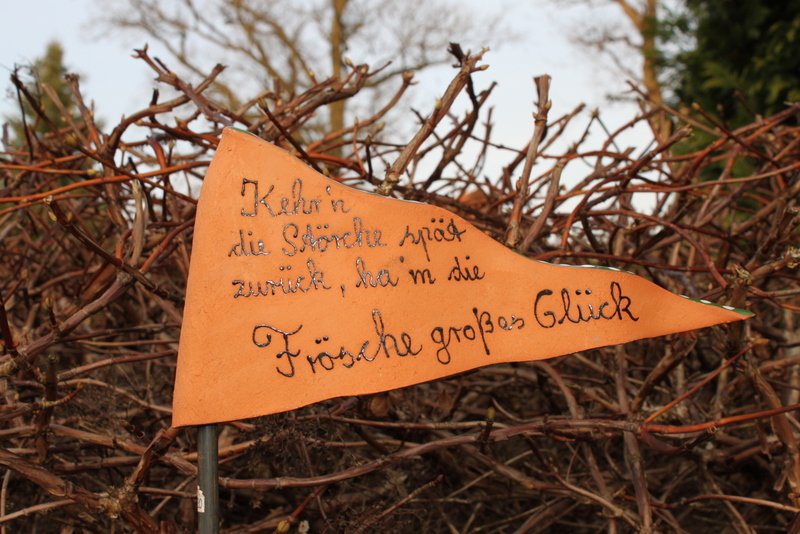 Kehr'n
die Störche spät
zurück, ha'm die
Frösche großes Glück